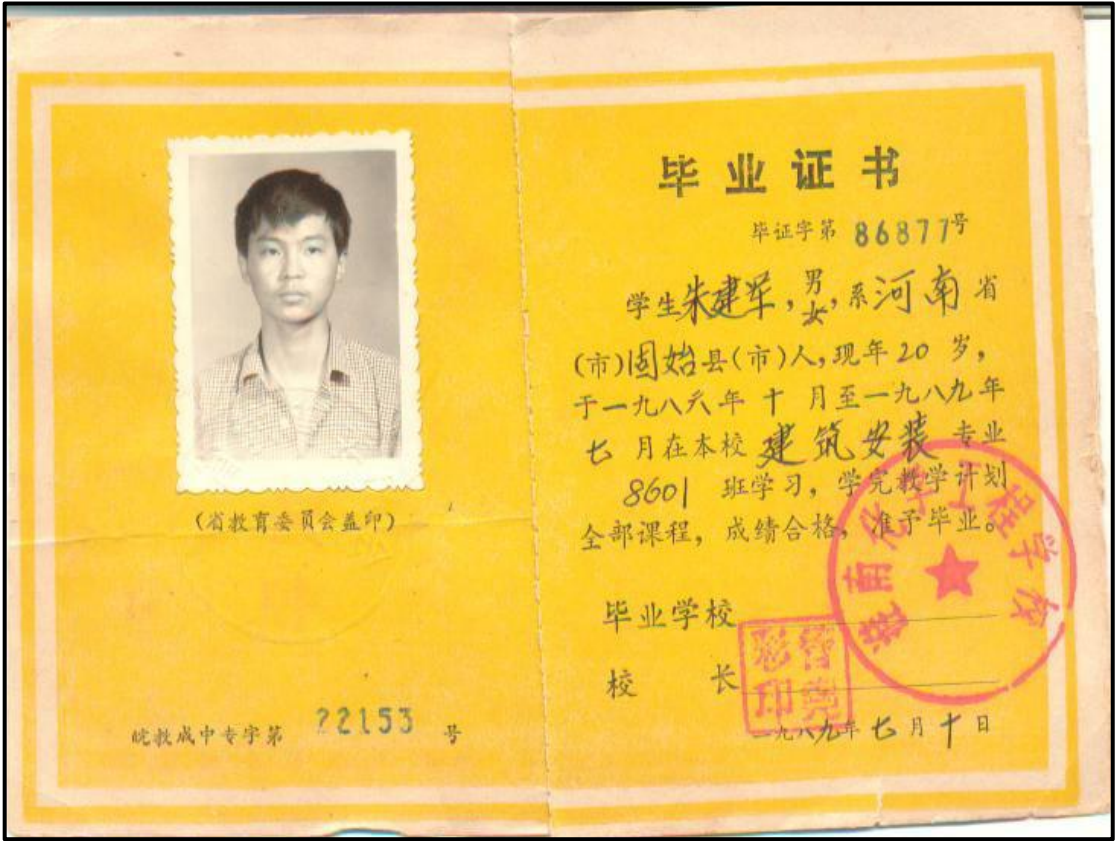 (省教育委员会盖印)
皖教成中专字第 22153 号
毕业证书
毕证字第 86877号
学生朱建军,男女,系河南省
(市)固始县(市)人,现年20岁,
于一九八六年十月至一九八九年
七月在本校建筑安装专业
8601班学习,学完教学计划
全部课程,成绩合格,准予毕业。
毕业学校
校长
一九八九年七月十日